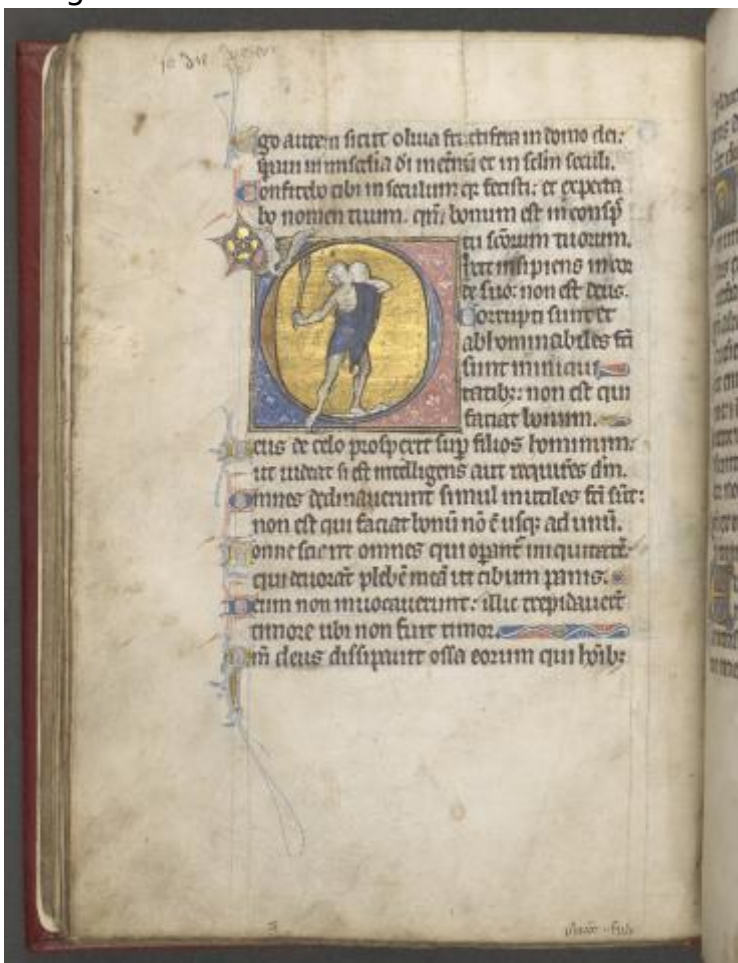 Ego autem sicut oliua fructifera in domo dei:
in mīa dī in et̄nū et in sc̄lm seculi.
Confitebor tibi in seculum q̄ fecisti: et expecta
bo nomen tuum. qm̄ bonum est in consp̄
tu sc̄orum tuorum.
Dixit insipiens in cor
de suo: non est deus.
Corrupti sunt et
abhominabiles fc̄i
sunt in iniqui
tatibȝ: non est qui
faciat bonum.
Deus de celo prospexit sup filios hominum:
ut uideat si est intelligens aut requirēs dm̄.
Omnes declinauerunt simul inutiles fc̄i sūt:
non est qui faciat bonū nō ē usqȝ ad unū.
Nonne scient omnes qui opant̄ iniquitatē:
qui deuorāt plebē meā ut cibum panis.
Deum non inuocauerunt: illic trepidauer̄t
timore ubi non fuit timor.
Qm̄ deus dissipauit ossa eorum qui hōibȝ